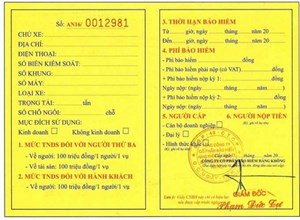 Số: AN14/ 0012981
CHỦ XE:
ĐỊA CHỈ
ĐIỆN THOẠI:
SỐ BIỂN KIỂM SOÁT:
SỐ KHUNG:
SỐ MÁY:
LOẠI XE:
TRỌNG TẢI: tấn
SỐ CHỖ NGỒI: chỗ
MỤC ĐÍCH SỬ DỤNG:
Kinh doanh Không kinh doanh
1. MỨC TNDS ĐỐI VỚI NGƯỜI THỨ BA
- Về người: 100 triệu đồng/1 người/1 vụ
- Về tài sản: 100 triệu đồng/1 vụ
2. MỨC TNDS ĐỐI VỚI HÀNH KHÁCH
- Về người: 100 triệu đồng/1 người/1 vụ
3. THỜI HẠN BẢO HIỂM
Từ: giờ, ngày tháng năm 20
Đến: giờ, ngày tháng năm 20
4. PHÍ BẢO HIỂM
- Phí bảo hiểm: đồng
- Phí bảo hiểm phải nộp (có VAT) đồng
+ Phí bảo hiểm nộp kỳ 1: đồng
Ngày nộp (ngày tháng năm 20
+ Phí bảo hiểm nộp kỳ 2: đồng
Ngày nộp (ngày tháng năm 20
5. NGƯỜI CẤP 6. NGƯỜI NỘP TIỀN
- Cán bộ doanh nghiệp
- Đại lý
- Hình thức khác
GIÁM ĐỐC
Phạm Đức Tục